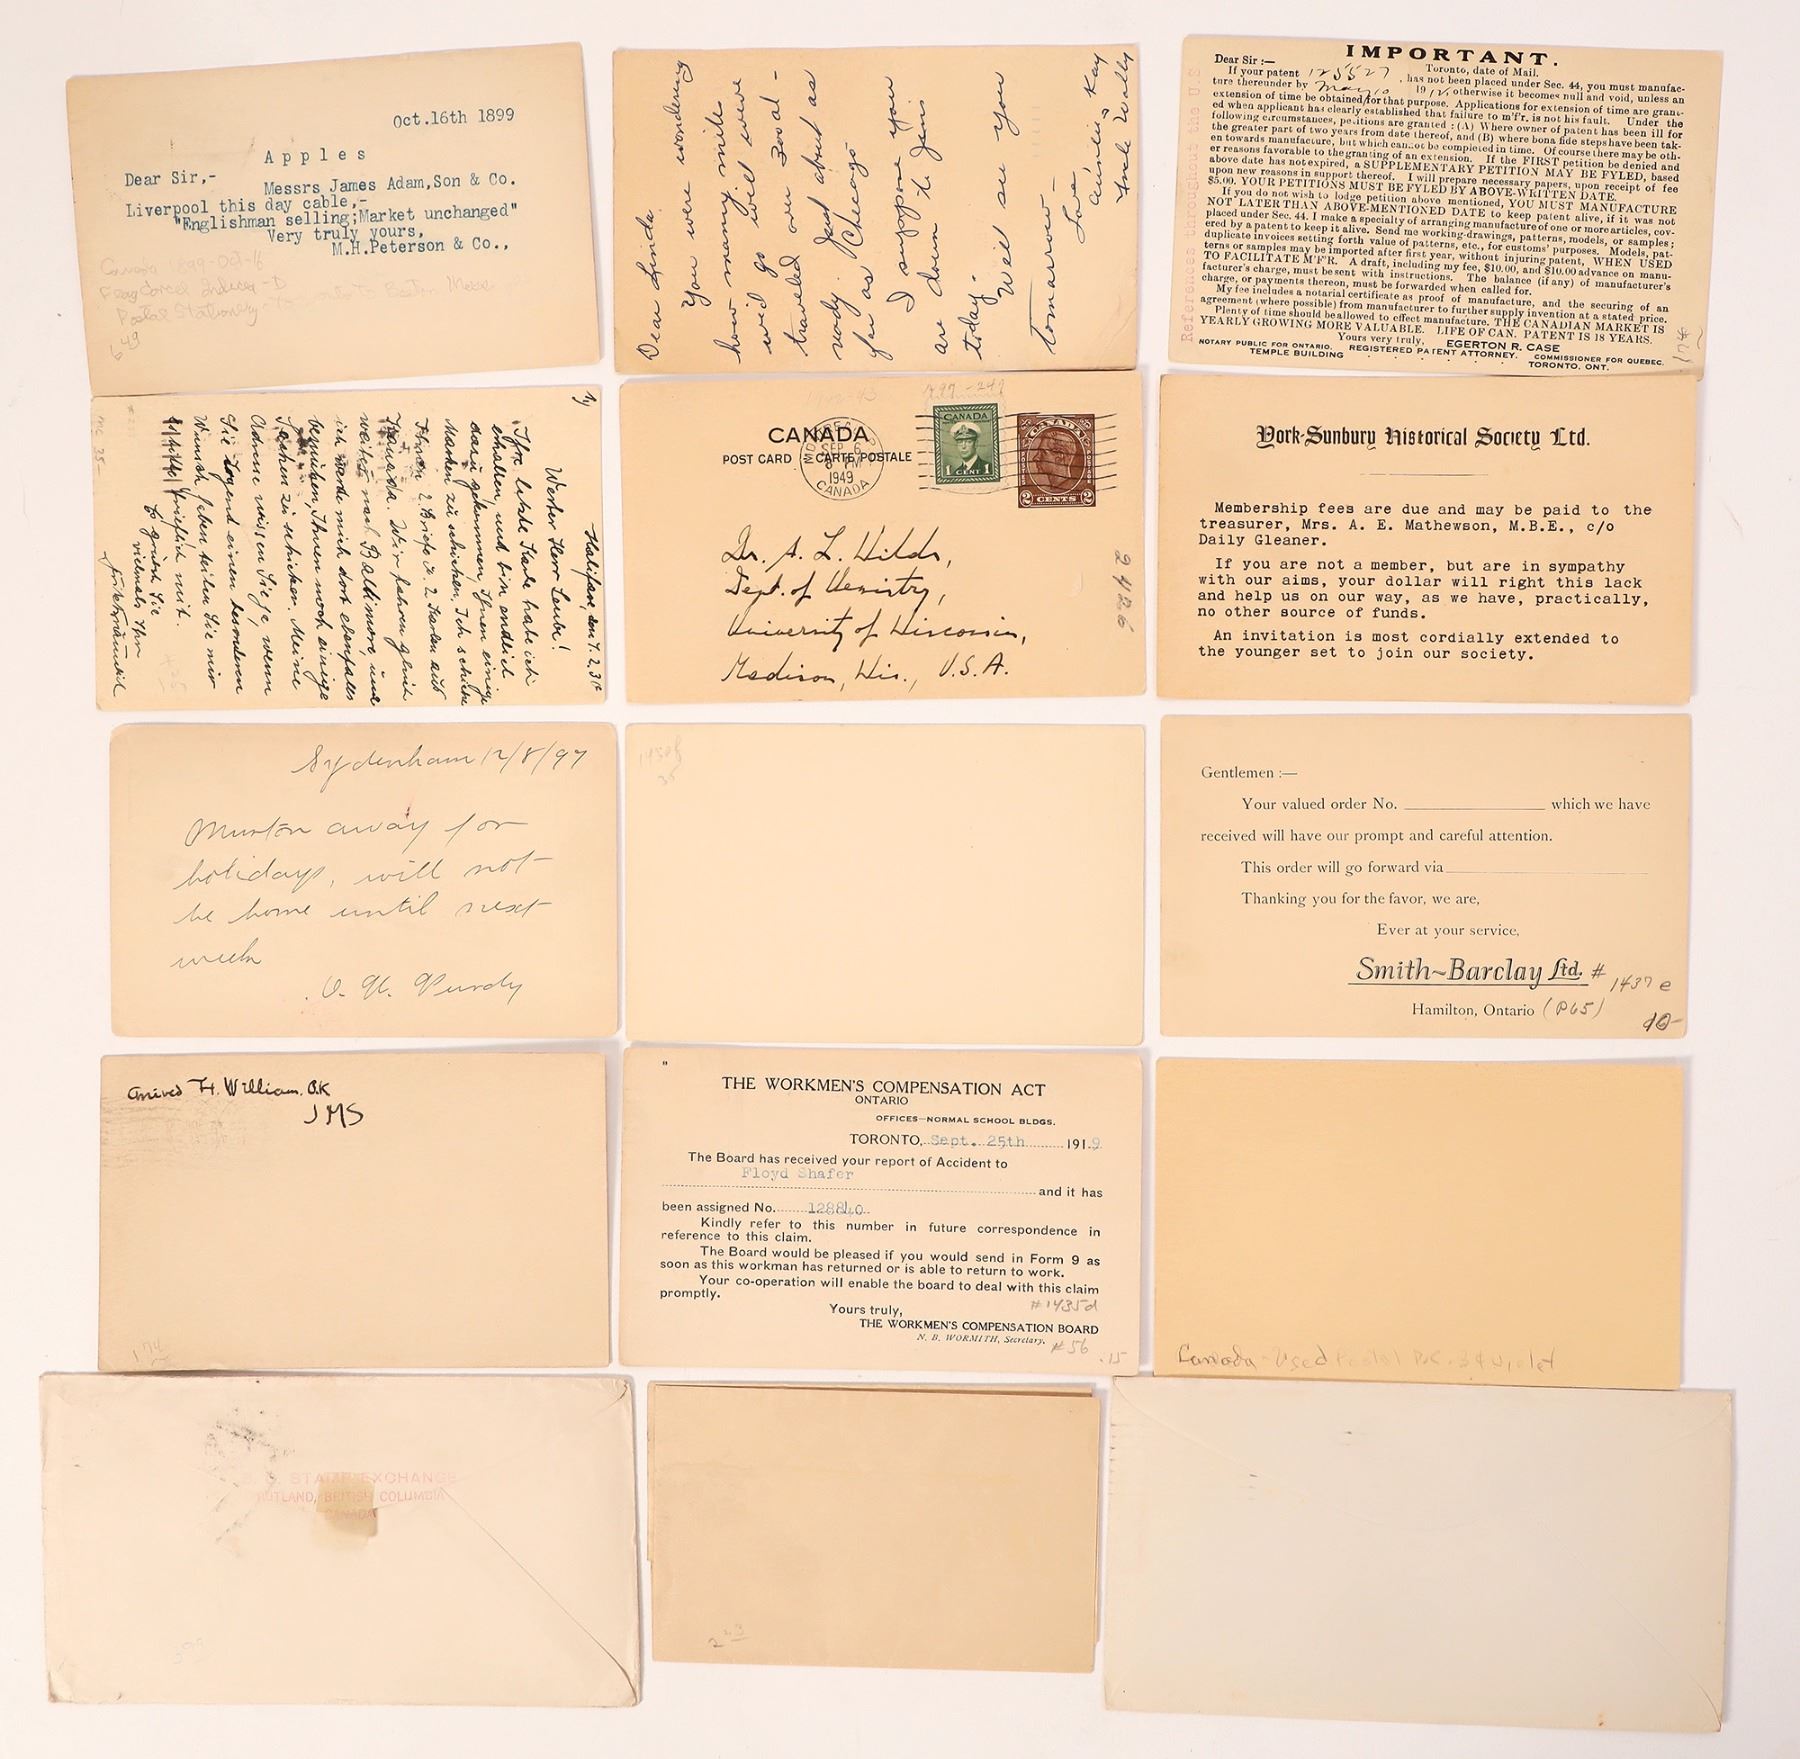 Oct.16th 1899
Apples
Dear Sir,-
Messrs James Adam,Son & Co.
Liverpool this day cable,-
"Englishman selling;Market unchanged"
Very truly yours,
M.H.Peterson & Co.,
Canada 1899-Oct-16
Postal Stationery - Toronto To Boston Mass
649
Dear Linda
You were wondering
how many mile
we'd go will weve
traveled over 300 al-
redy. Just about as
far as Chicago
I suppose you
are down to Jens
today-
Well see you
tomarrow-
Love-
Aunties Kay
Uncle Wally
IMPORTANT.
Toronto, date of Mail.
Dear Sir :—
If your patent 125527, has not been placed under Sec. 44, you must manufac-
ture thereunder by May 10 1912, otherwise it becomes null and void, unless an
extension of time be obtained for that purpose. Applications for extension of time are grant-
ed when applicant has clearly established that failure to m'f'r. is not his fault. Under the
following circumstances, petitions are granted : (A) Where owner of patent has been ill for
the greater part of two years from date thereof, and (B) where bona fide steps have been tak-
en towards manufacture, but which cannot be completed in time. Of course there may be oth-
er reasons favorable to the granting of an extension. If the FIRST petition be denied and
above date has not expired, a SUPPLEMENTARY PETITION MAY BE FYLED, based
upon new reasons in support thereof. I will prepare necessary papers, upon receipt of fee
$5.00. YOUR PETITIONS MUST BE FYLED BY ABOVE-WRITTEN DATE.
If you do not wish to lodge petition above mentioned, YOU MUST MANUFACTURE
NOT LATER THAN ABOVE-MENTIONED DATE to keep patent alive, if it was not
placed under Sec. 44. I make a specialty of arranging manufacture of one or more articles, cov-
ered by a patent to keep it alive. Send me working-drawings, patterns, models, or samples ;
duplicate invoices setting forth value of patterns, etc., for customs' purposes. Models, pat-
terns or samples may be imported after first year, without injuring patent, WHEN USED
TO FACILITATE M'F'R. A draft, including my fee, $10.00, and $10.00 advance on manu-
facturer's charge, must be sent with instructions. The balance (if any) of manufacturer's
charge, or payments thereon, must be forwarded when called for.
My fee includes a notarial certificate as proof of manufacture, and the securing of an
agreement (where possible) from manufacturer to further supply invention at a stated price.
Plenty of time should be allowed to effect manufacture. THE CANADIAN MARKET IS
YEARLY GROWING MORE VALUABLE. LIFE OF CAN. PATENT IS 18 YEARS.
Yours very truly, EGERTON R. CASE
NOTARY PUBLIC FOR ONTARIO. REGISTERED PATENT ATTORNEY. COMMISSIONER FOR QUEBEC.
TEMPLE BUILDING TORONTO, ONT.
References throughout the U.S
Halifax, den 7.2.38
Werter Herr Laube!
Ihre letzte Karte habe ich
erhalten, und bin endlich
dazu gekommen, Ihnen einige
Marken zu schicken. Ich schicke
Ihnen 2 Briefe u. 2 Karten aus
Kanada. Wir fahren gleich
weiter nach Baltimore, und
ich werde mich dort ebenfalls
bemühen, Ihnen noch einige
Sachen zu schicken. Meine
Adresse wissen Sie ja, wenn
Sie irgend einen besonderen
Wunsch haben teilen Sie mir
brieflich mit.
Es grüsst Sie
vielmals Ihr
MC 35-
CANADA
POST CARD CARTE POSTALE
SEP 6
PM
1949
CANADA
CANADA
1 CENT 1
CANADA
2 CENTS 2
Dr. A. L. Wilds,
Dept. of Chemistry,
University of Wisconsin,
Madison, Wis., U.S.A.
2426
York-Sunbury Historical Society Ltd.
Membership fees are due and may be paid to the
treasurer, Mrs. A. E. Mathewson, M.B.E., c/o
Daily Gleaner.
If you are not a member, but are in sympathy
with our aims, your dollar will right this lack
and help us on our way, as we have, practically,
no other source of funds.
An invitation is most cordially extended to
the younger set to join our society.
Sydenham 12/8/97
Murton away for
holidays, will not
be home until next
week
Purdy
35
Gentlemen :—
Your valued order No. which we have
received will have our prompt and careful attention.
This order will go forward via
Thanking you for the favor, we are,
Ever at your service,
Smith~Barclay Ltd. # 1437e
Hamilton, Ontario (P65)
10-
arrived Ft. William. O.K
JMS
174
THE WORKMEN'S COMPENSATION ACT
ONTARIO
OFFICES—NORMAL SCHOOL BLDGS.
TORONTO, Sept. 25th 1919
The Board has received your report of Accident to
Floyd Shafer
and it has
been assigned No. 128840
Kindly refer to this number in future correspondence in
reference to this claim.
The Board would be pleased if you would send in Form 9 as
soon as this workman has returned or is able to return to work.
Your co-operation will enable the board to deal with this claim
promptly.
#1435d
Yours truly,
THE WORKMEN'S COMPENSATION BOARD
N. B. WORMITH, Secretary.
#56
.15
Canada - Used Postal P.C. 3¢ violet
STAMP EXCHANGE
RUTLAND, BRITISH COLUMBIA
CANADA